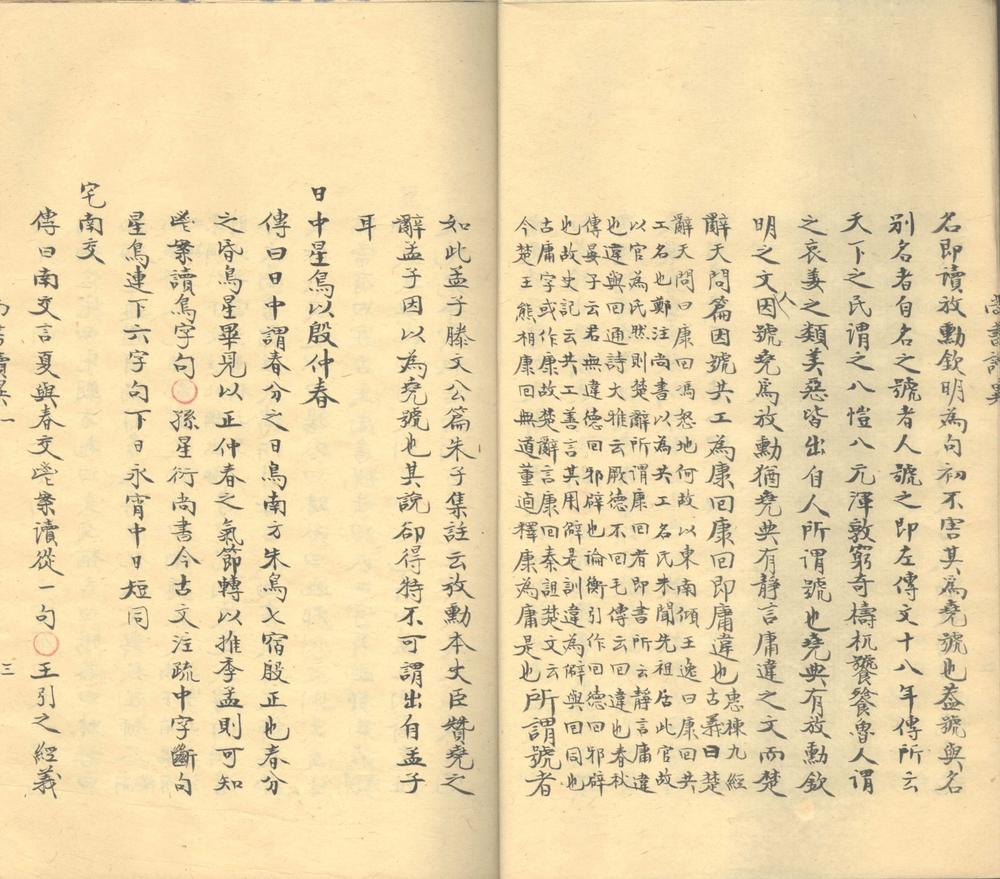 名即讀放勳欽明為句初不害其為堯號也蓋號與名
別名者自名之號者人號之即左傳文十八年傳所云
天下之民謂之八愷八元渾敦窮奇檮杌饕餮魯人謂
之哀姜之類美惡皆出自人所謂號也堯典有放勳欽
明之文因人號堯為放勳猶堯典有靜言庸違之文而楚
辭天問篇因號共工為康回康回即庸違也惠棟九經
古義曰楚
辭天問曰康回馮怒地何故以東南傾王逸曰康回共
工名也鄭注尚書以為共工名氏未聞先祖居此官故
以官為氏然則楚辭所謂康回者即書所云靜言庸違
也違與回通詩大雅云厥德不回毛傳云回違也春秋
傳晏子云君無違德回邪辟也論衡引作回德回邪辟
也故史記云共工善言其用僻是訓違為僻與回同也
古庸字或作康故楚辭言康回秦詛楚文云
今楚王熊相康回無道董逌釋康為庸是也所謂號者
如此孟子滕文公篇朱子集註云放勳本史臣贊堯之
辭孟子因以為堯號也其說卻得特不可謂出自孟子
耳
日中星鳥以殷仲春
傳曰日中謂春分之日鳥南方朱鳥七宿殷正也春分
之昏鳥星畢見以正仲春之氣節轉以推季孟則可知
壄案讀鳥字句〇孫星衍尚書今古文注疏中字斷句
星鳥連下六字句下日永宵中日短同
宅南交
傳曰南交言夏與春交壄案讀從一句〇王引之經義
三